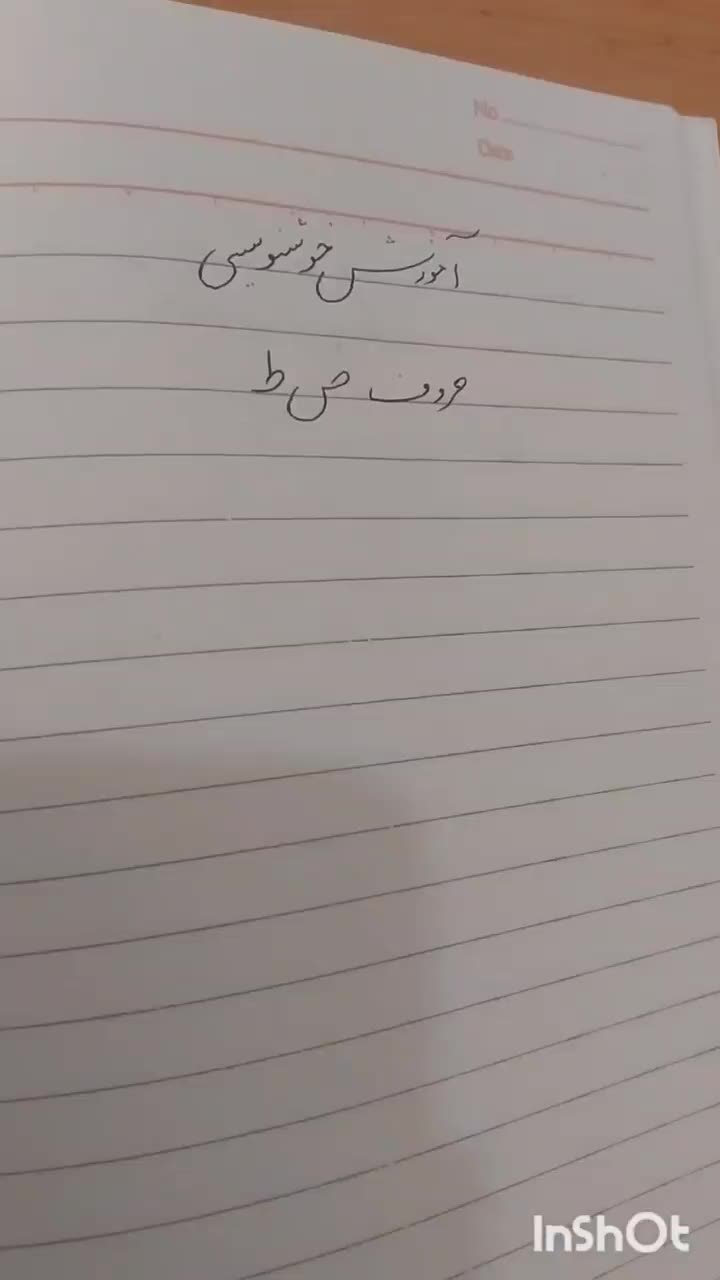 No
Date
آموزش خوشنویسی
حروف ص ط
InShOt